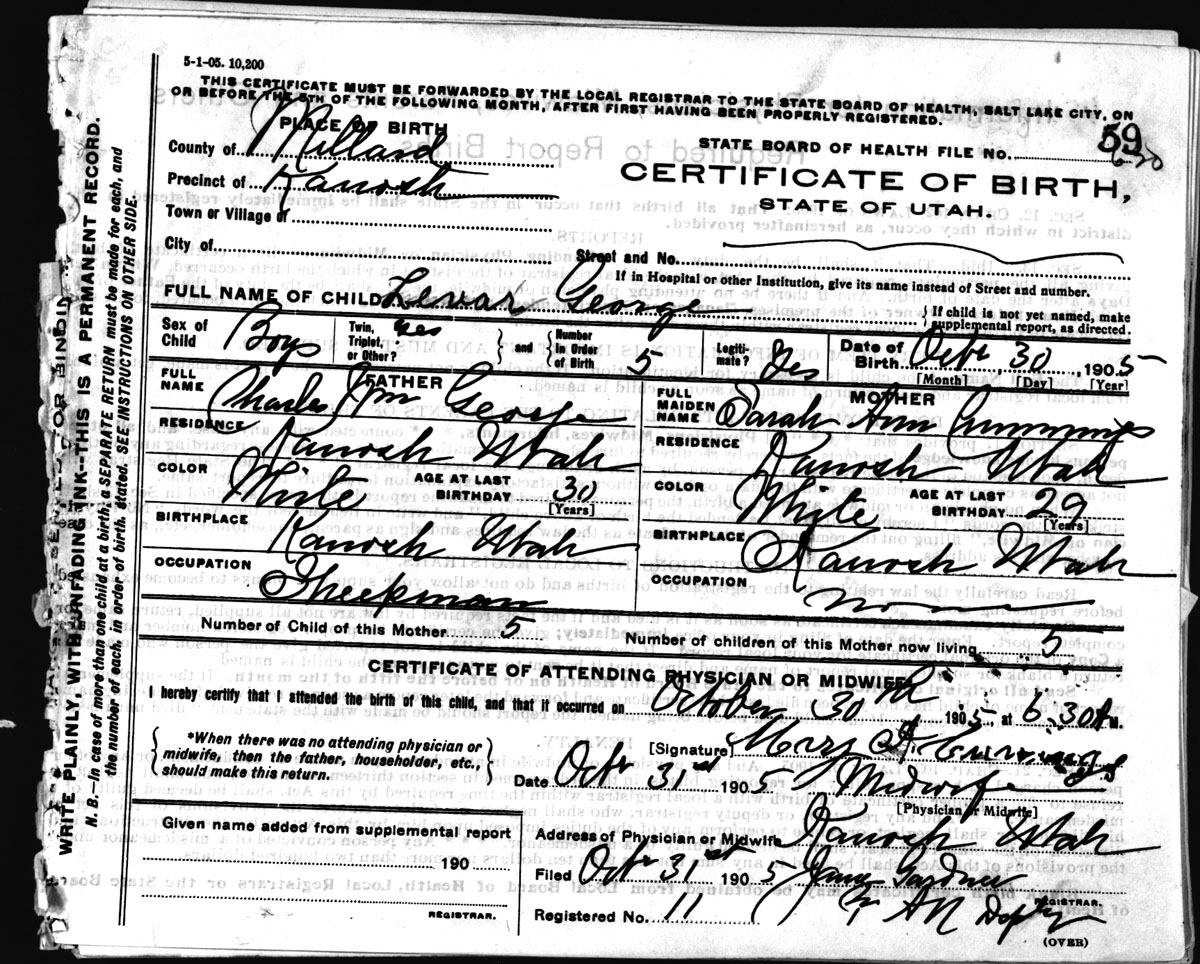 5-1-05. 10,200
THIS CERTIFICATE MUST BE FORWARDED BY THE LOCAL REGISTRAR TO THE STATE BOARD OF HEALTH, SALT LAKE CITY, ON
OR BEFORE THE 5TH OF THE FOLLOWING MONTH, AFTER FIRST HAVING BEEN PROPERLY REGISTERED.
PLACE OF BIRTH
County of Millard
Precinct of Kanosh
Town or Village of
City of
STATE BOARD OF HEALTH FILE NO. 59
CERTIFICATE OF BIRTH,
STATE OF UTAH.
Street and No.
If in Hospital or other Institution, give its name instead of Street and number.
FULL NAME OF CHILD Levar George
If child is not yet named, make
supplemental report, as directed.
Sex of Child Boys
Twin, Triplet, or Other? yes
and
Number In Order of Birth 5
Legiti- mate? Yes
Date of Birth Octr 30, 1905
[Month] [Day] [Year]
FATHER
FULL NAME Charles Wm George
RESIDENCE Kanosh Utah
COLOR White
AGE AT LAST BIRTHDAY 30
[Years]
BIRTHPLACE Kanosh Utah
OCCUPATION Sheepman
MOTHER
FULL MAIDEN NAME Sarah Ann Cummings
RESIDENCE Kanosh Utah
COLOR White
AGE AT LAST BIRTHDAY 29
[Years]
BIRTHPLACE Kanosh Utah
OCCUPATION
Number of Child of this Mother 5
Number of children of this Mother now living 5
CERTIFICATE OF ATTENDING PHYSICIAN OR MIDWIFE
I hereby certify that I attended the birth of this child, and that it occurred on October 30th 1905, at 6.30 M.
*When there was no attending physician or
midwife, then the father, householder, etc.,
should make this return.
[Signature] Mary
Date Octr 31st 1905 Midwife
[Physician or Midwife]
Given name added from supplemental report
190
REGISTRAR.
Address of Physician or Midwife Kanosh Utah
Filed Octr 31st 1905 James Gardner
REGISTRAR.
Registered No. 11
(OVER)
WRITE PLAINLY, WITH UNFADING INK—THIS IS A PERMANENT RECORD.
N. B.—In case of more than one child at a birth, a SEPARATE RETURN must be made for each, and
the number of each, in order of birth, stated. SEE INSTRUCTIONS ON OTHER SIDE.